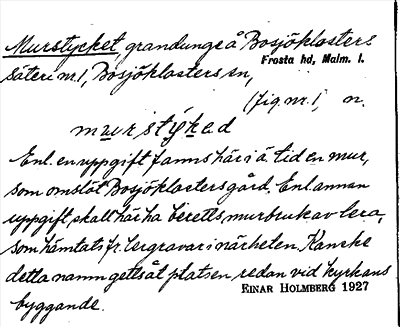 Murstycket, grandunge å Bosjöklosters
Frosta hd, Malm. l.
säteri nr 1, Bosjöklosters sn,
(fig. nr. 1) n.
murstýked
Enl. en uppgift fanns här i ä. tid en mur,
som omslöt Bosjöklosters gård. Enl. annan
uppgift, skall här ha beretts murbruk av lera,
som hämtats fr. lergravar i närheten. Kanske
detta namn getts åt platsen redan vid kyrkans
byggande.
EINAR HOLMBERG 1927